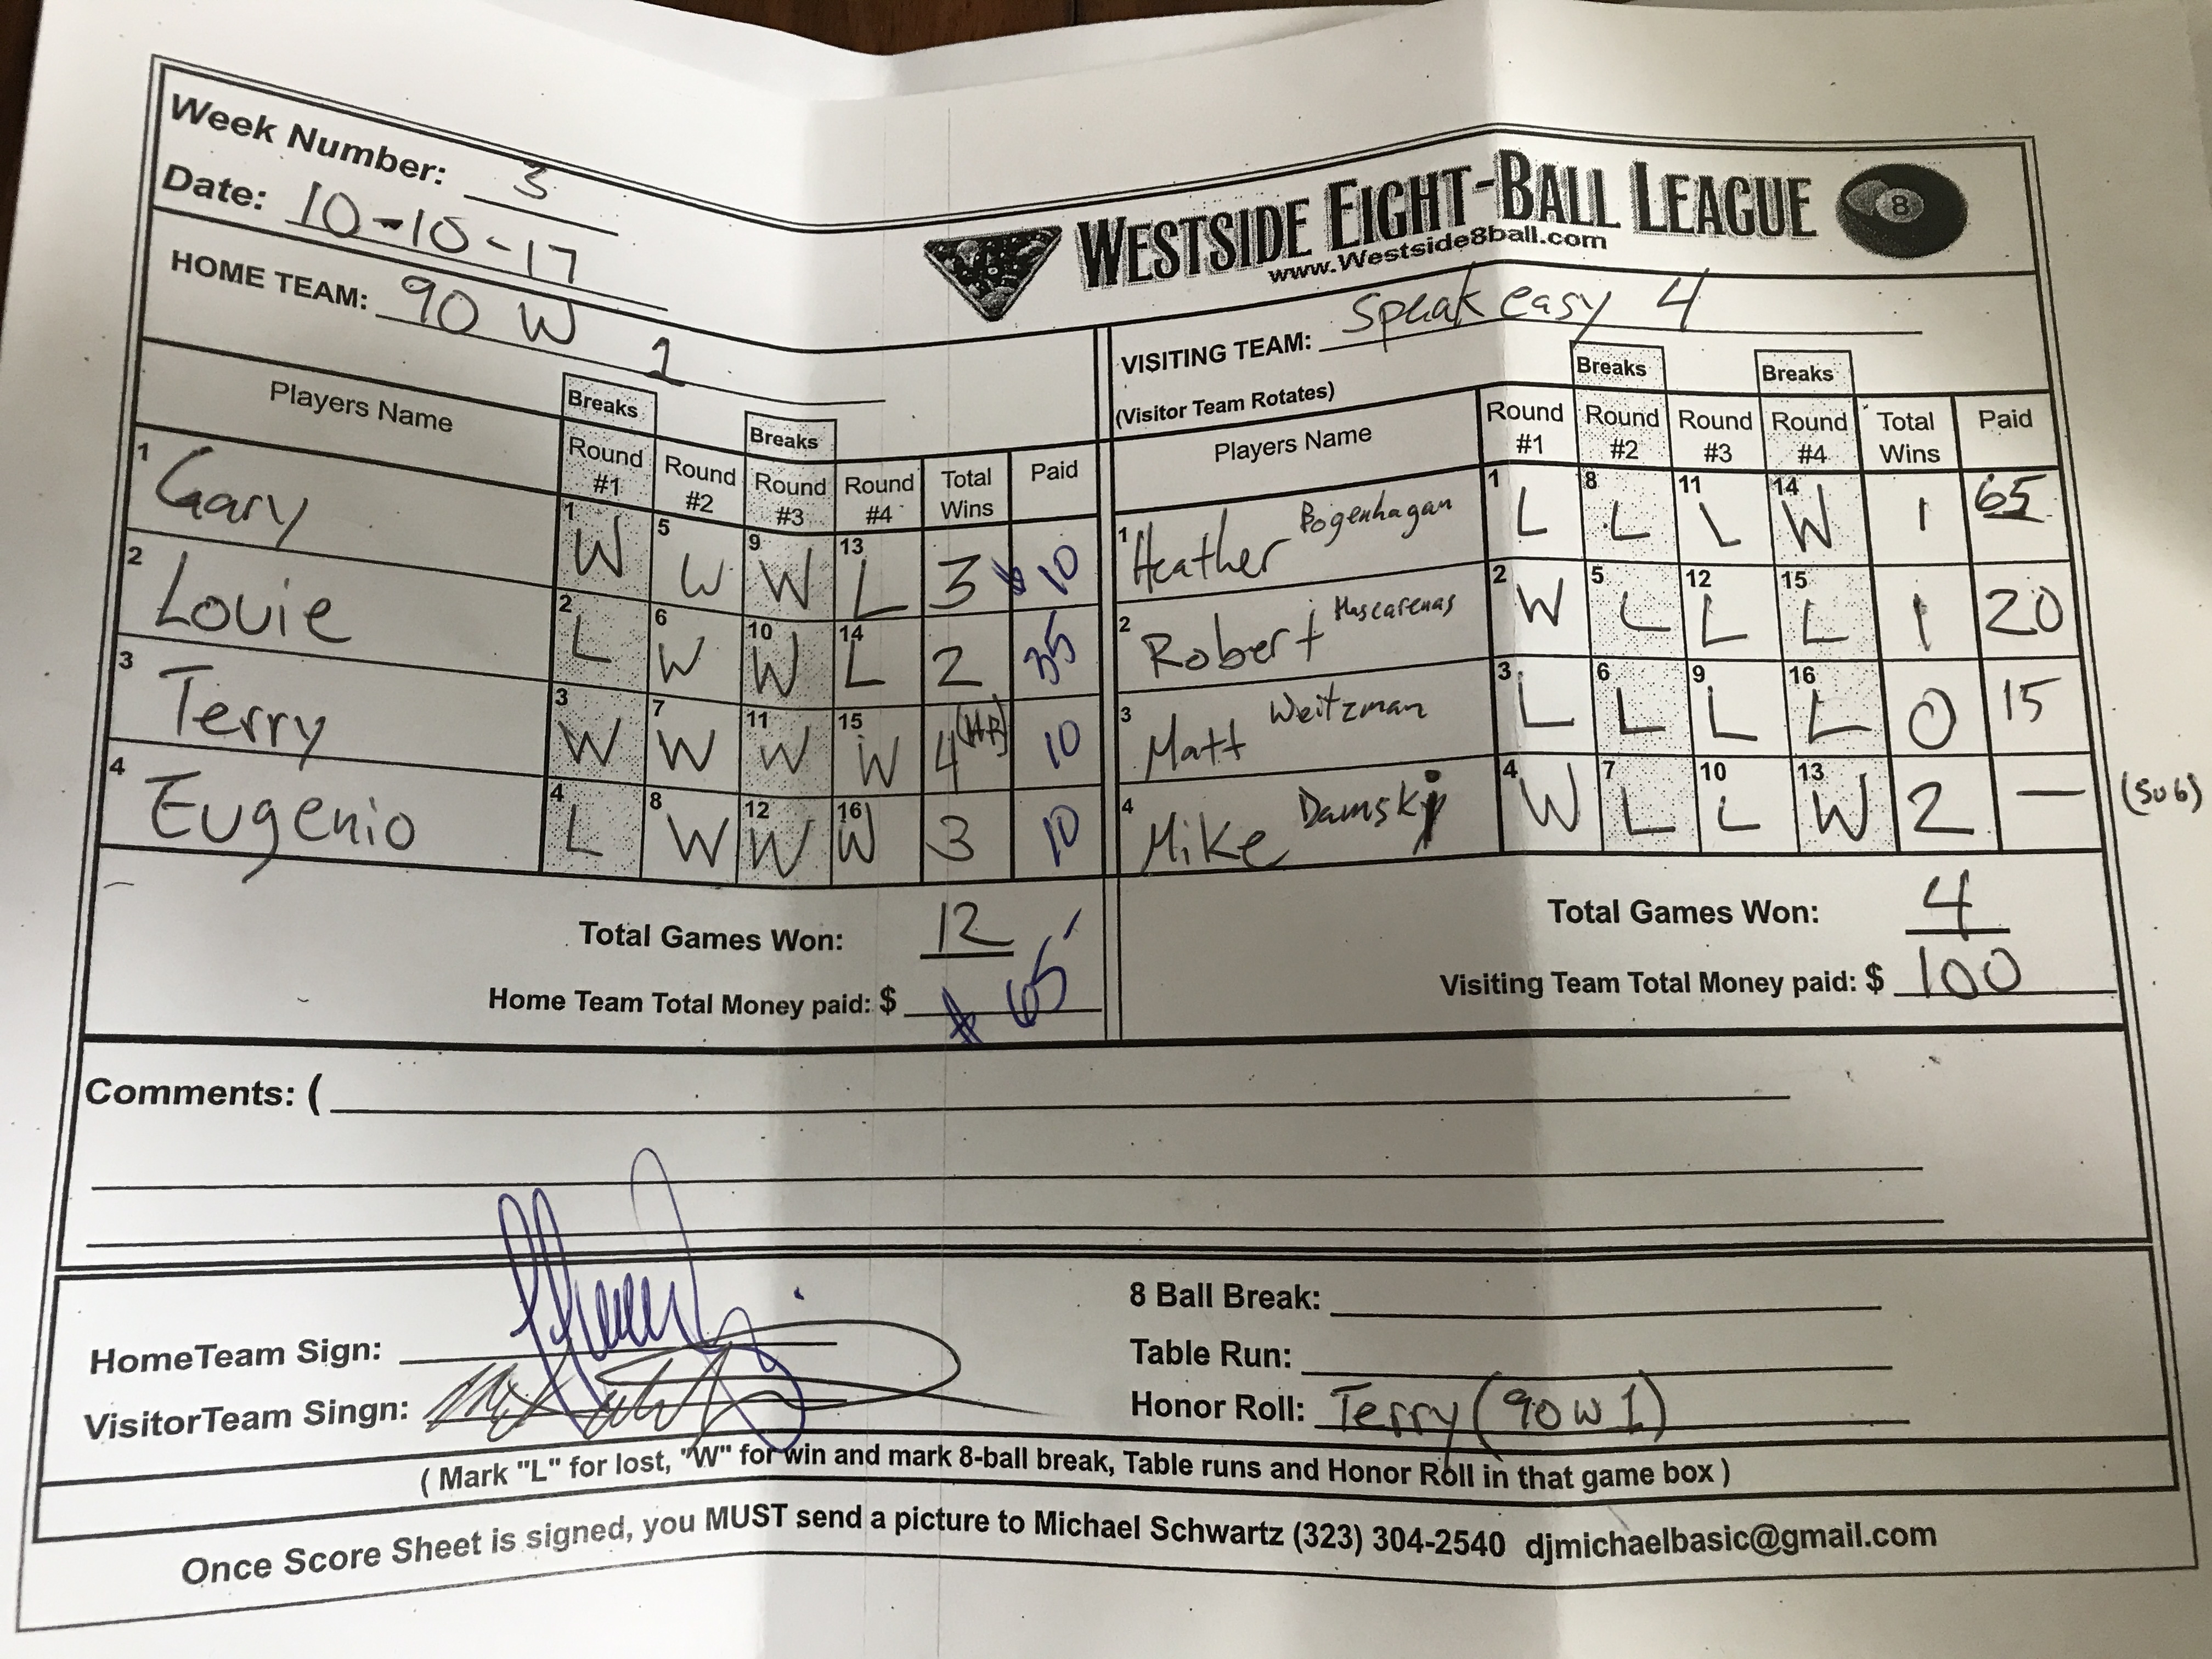 Week Number: 3
Date: 10-10-17
WESTSIDE EIGHT-BALL LEAGUE 8
www.Westside8ball.com
HOME TEAM: 90 W 1
VISITING TEAM: Speakeasy 4
(Visitor Team Rotates)
Players Name Breaks Breaks
Round #1 Round #2 Round #3 Round #4 Total Wins Paid
1 Gary 1 W 5 W 9 W 13 L 3 $10
2 Louie 2 L 6 W 10 W 14 L 2 35
3 Terry 3 W 7 W 11 W 15 W 4 (HR) 10
4 Eugenio 4 L 8 W 12 W 16 W 3 10
Total Games Won: 12
Home Team Total Money paid: $ $65
Players Name Breaks Breaks
Round #1 Round #2 Round #3 Round #4 Total Wins Paid
1 Heather Bogenhagan 1 L 8 L 11 L 14 W 1 65
2 Robert Mascarenas 2 W 5 L 12 L 15 L 1 20
3 Matt Weitzman 3 L 6 L 9 L 16 L 0 15
4 Mike Damski 4 W 7 L 10 L 13 W 2 — (Sub)
Total Games Won: 4
Visiting Team Total Money paid: $ 100
Comments: (
HomeTeam Sign:
VisitorTeam Singn:
8 Ball Break:
Table Run:
Honor Roll: Terry (90 W 1)
( Mark "L" for lost, "W" for win and mark 8-ball break, Table runs and Honor Roll in that game box )
Once Score Sheet is signed, you MUST send a picture to Michael Schwartz (323) 304-2540 djmichaelbasic@gmail.com